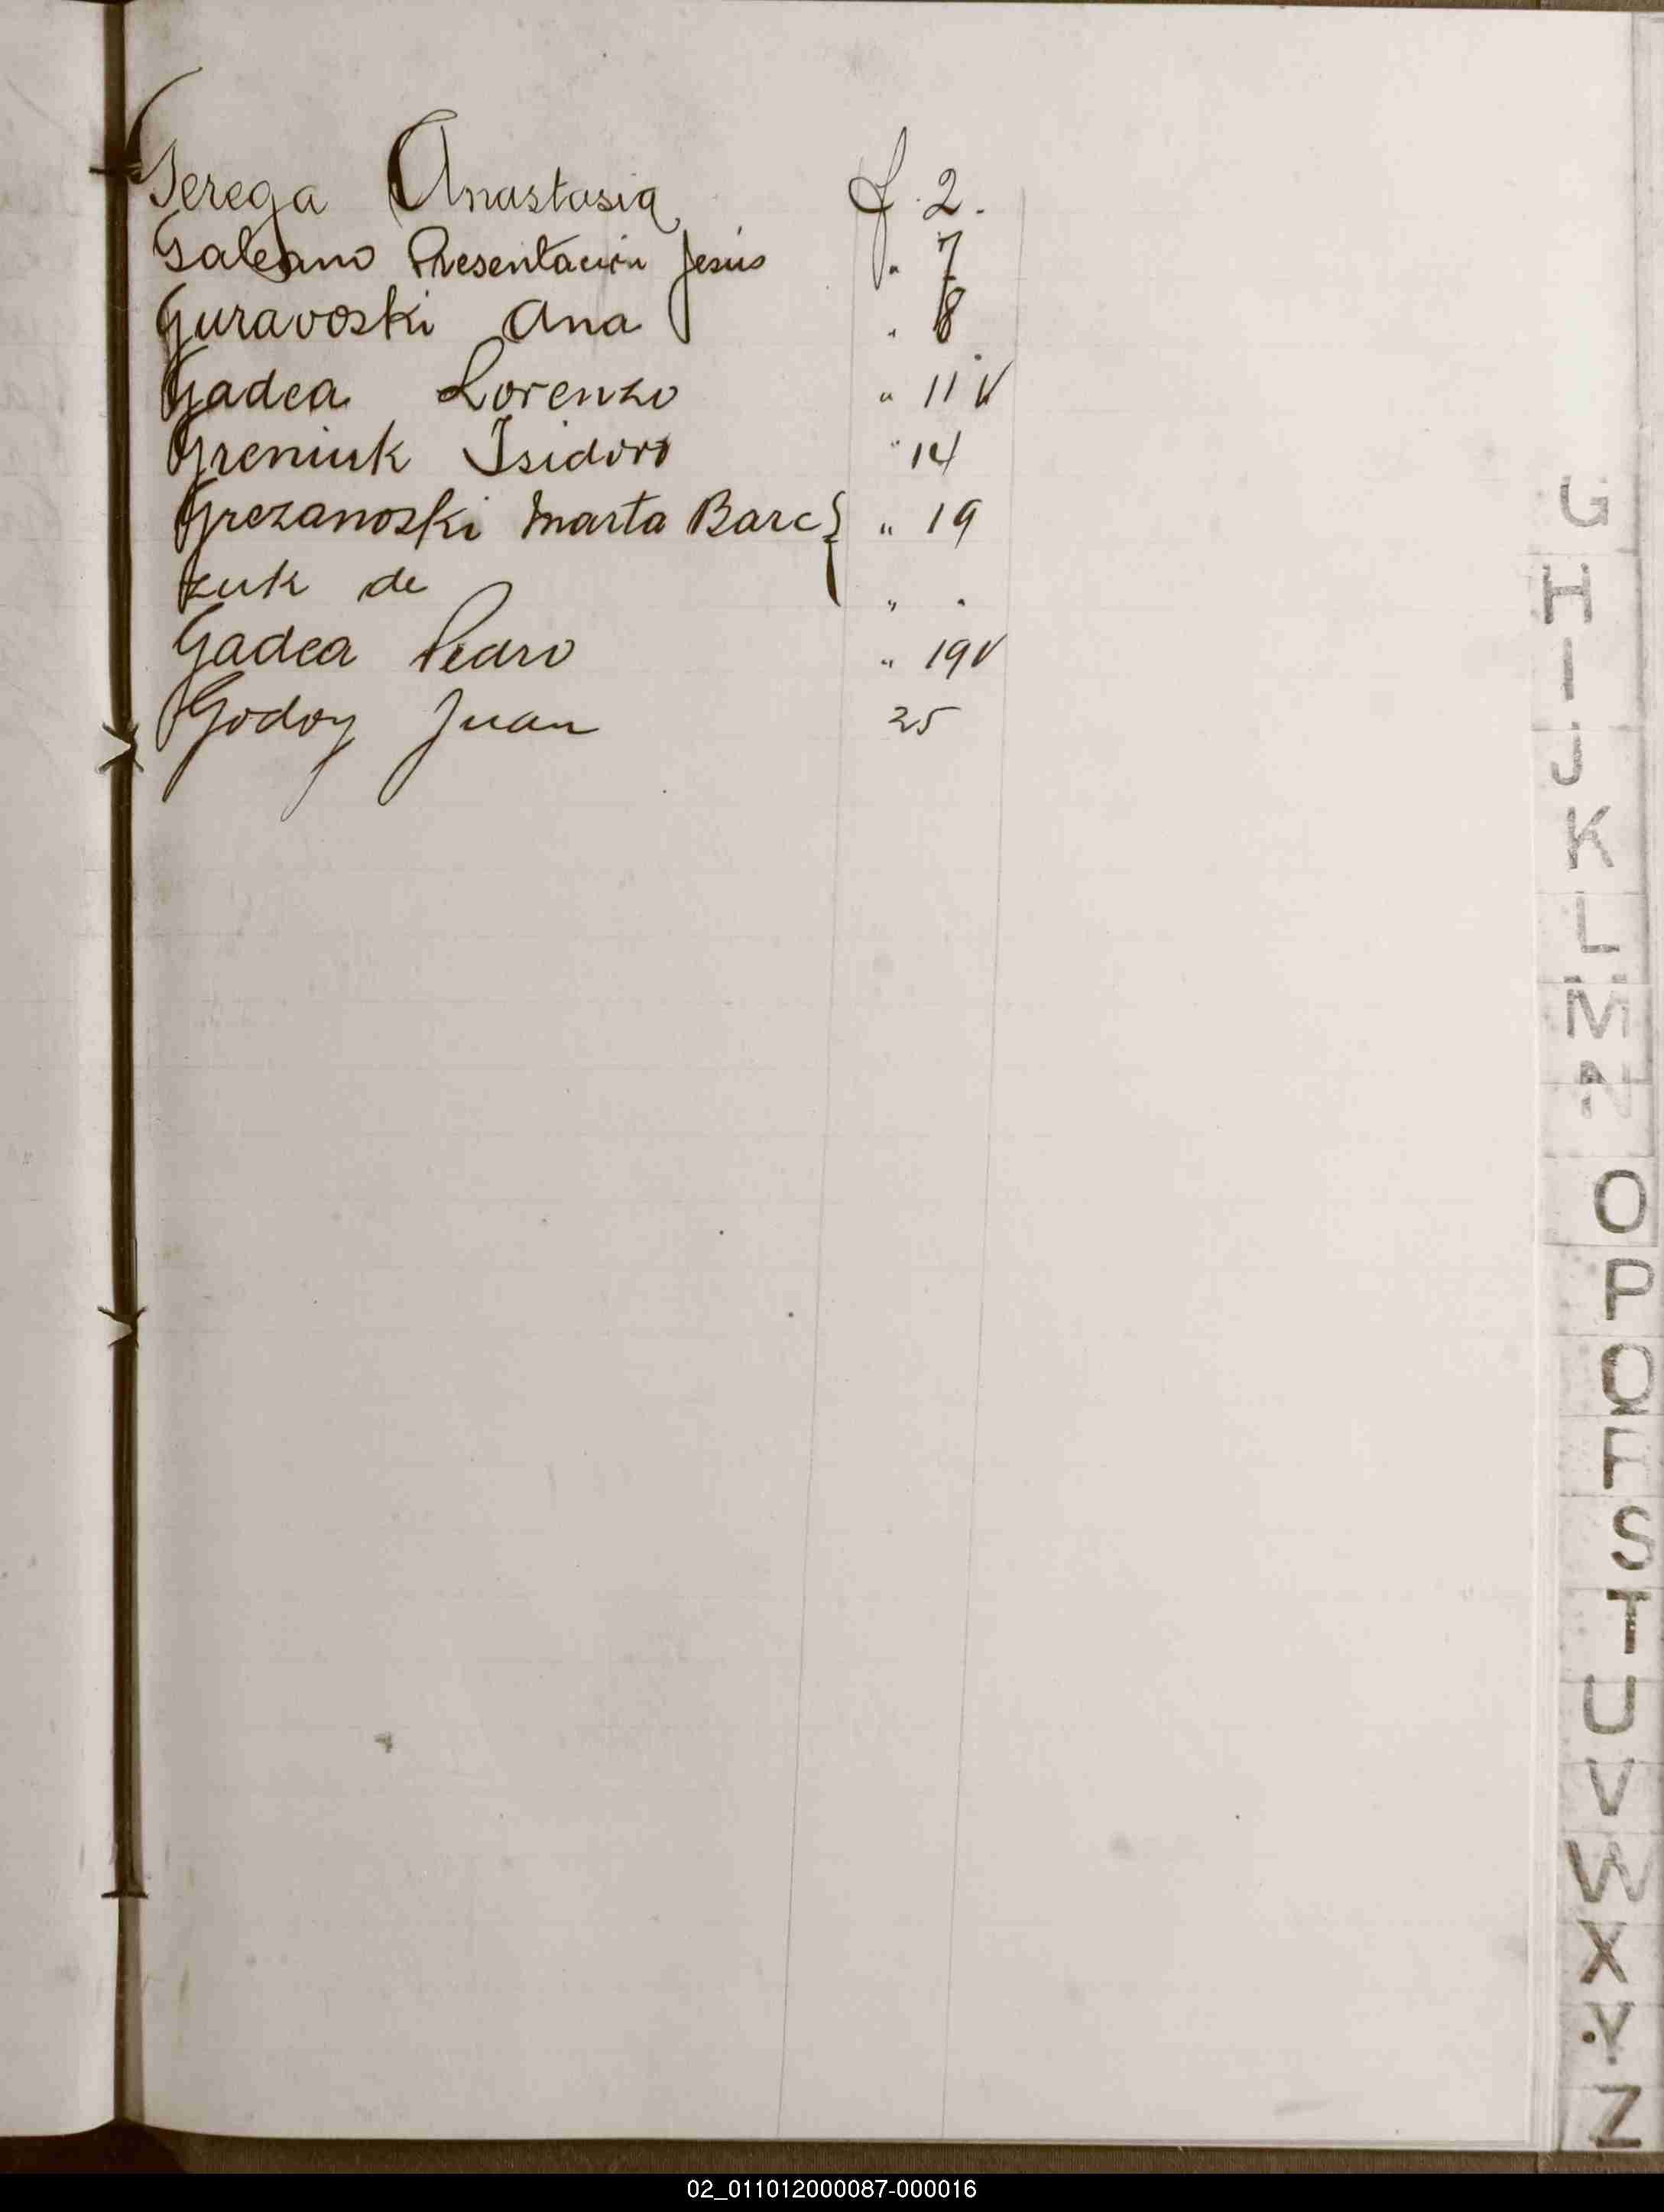 Gerega Anastasia f. 2.
Galeano Presentacion Jesús " 7
Guravoski Ana " 8
Gadea Lorenzo " 11 V
Greniuk Isidoro " 14
Grezanoski Marta Barc { " 19
zuk de " .
Gadea Pedro " 19V
Godoy Juan 25
G
H
I
J
K
L
M
N
O
P
Q
R
S
T
U
V
W
X
Y
Z
02_011012000087-000016